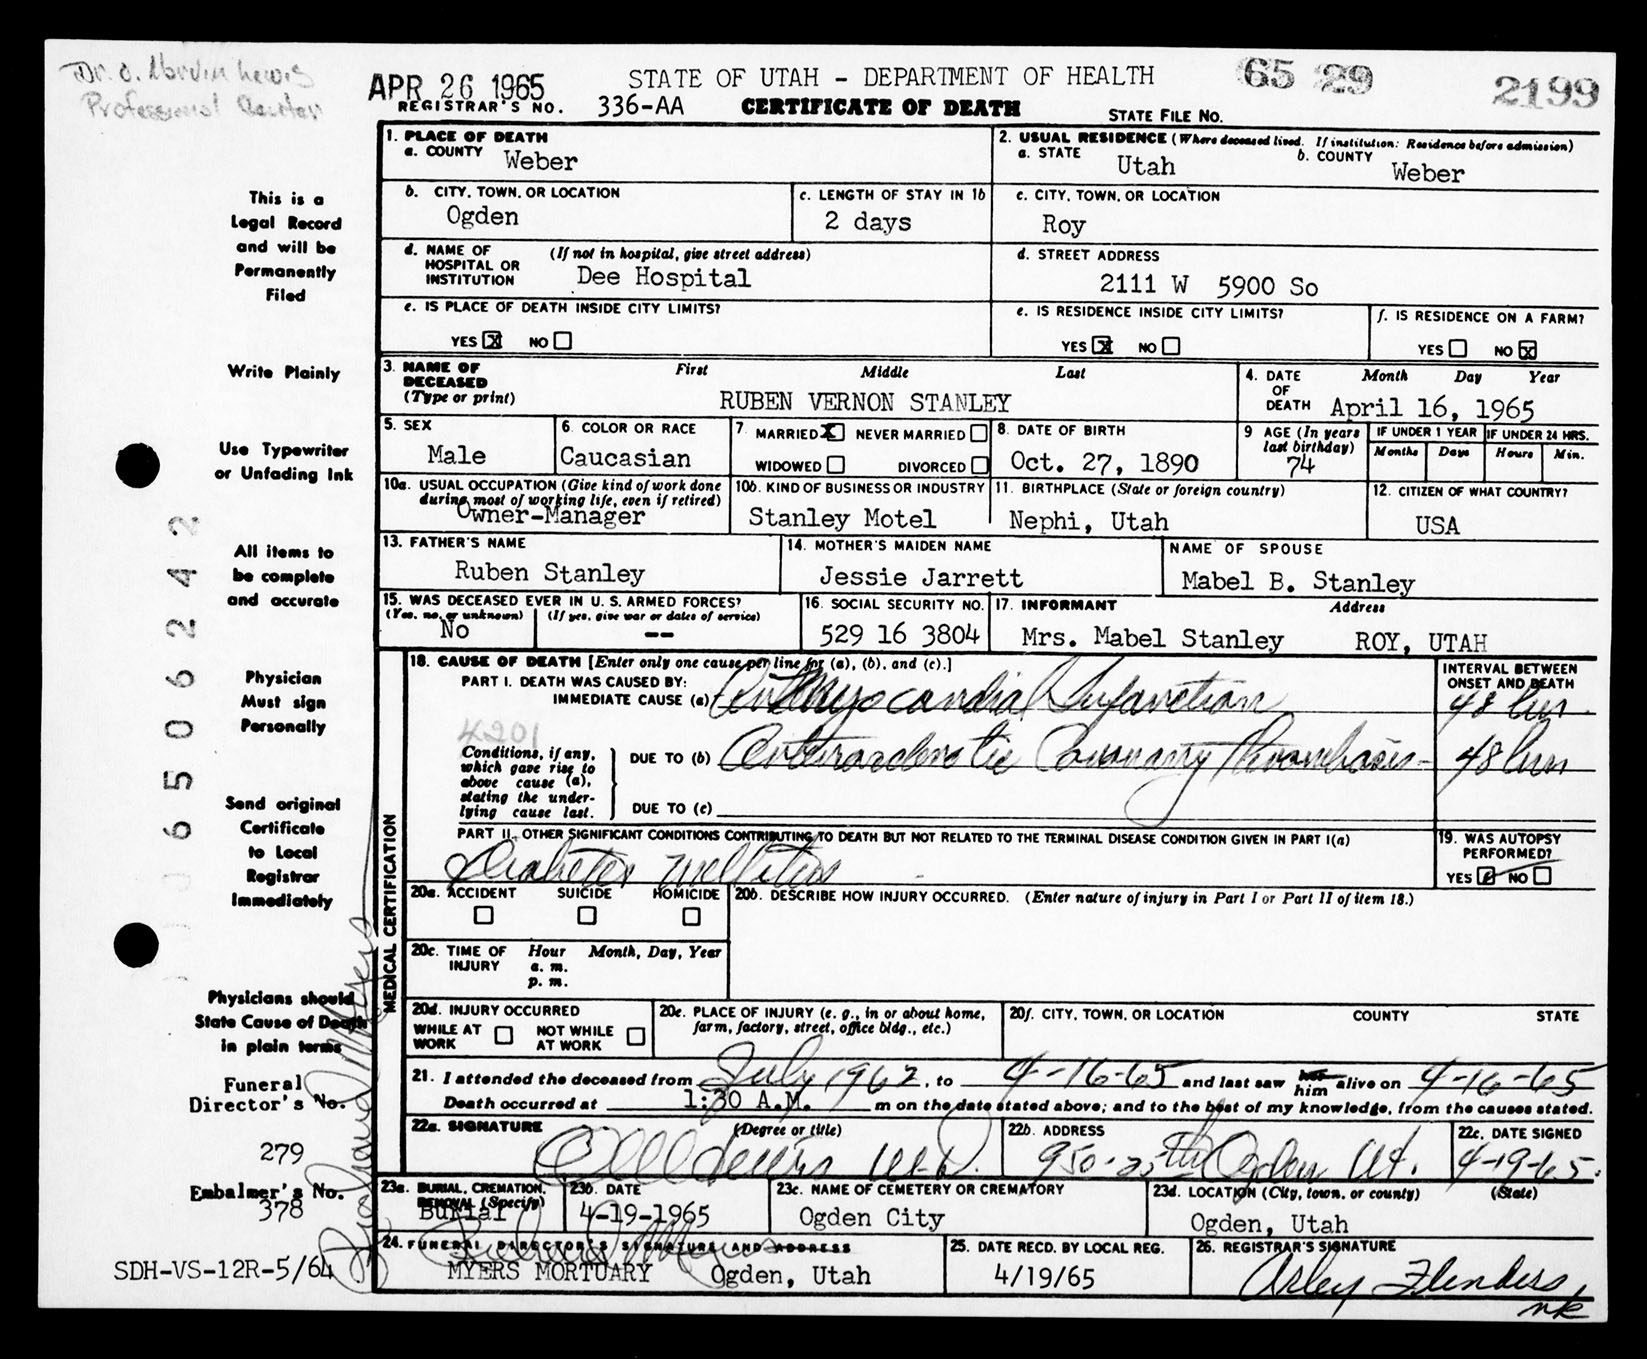 Dr. O. Marvin Lewis
Professional Center
APR 26 1965
STATE OF UTAH - DEPARTMENT OF HEALTH
65 29
2199
REGISTRAR'S NO. 336-AA
CERTIFICATE OF DEATH
STATE FILE No.
This is a
Legal Record
and will be
Permanently
Filed
Write Plainly
Use Typewriter
or Unfading Ink
All items to
be complete
and accurate
Physician
Must sign
Personally
Send original
Certificate
to Local
Registrar
Immediately
Physicians should
State Cause of Death
in plain terms
Funeral
Director's No.
279
Embalmer's No.
378
SDH-VS-12R-5/64
6506242
1. PLACE OF DEATH
a. COUNTY Weber
2. USUAL RESIDENCE (Where deceased lived. If institution: Residence before admission)
a. STATE Utah b. COUNTY Weber
b. CITY, TOWN, OR LOCATION
Ogden
c. LENGTH OF STAY IN 1b
2 days
c. CITY, TOWN, OR LOCATION
Roy
d. NAME OF HOSPITAL OR INSTITUTION (If not in hospital, give street address)
Dee Hospital
d. STREET ADDRESS
2111 W 5900 So
e. IS PLACE OF DEATH INSIDE CITY LIMITS?
YES X NO
e. IS RESIDENCE INSIDE CITY LIMITS?
YES X NO
f. IS RESIDENCE ON A FARM?
YES NO X
3. NAME OF DECEASED (Type or print)
First Middle Last
RUBEN VERNON STANLEY
4. DATE OF DEATH
Month Day Year
April 16, 1965
5. SEX
Male
6. COLOR OR RACE
Caucasian
7. MARRIED X NEVER MARRIED
WIDOWED DIVORCED
8. DATE OF BIRTH
Oct. 27, 1890
9 AGE (In years last birthday)
74
IF UNDER 1 YEAR
Months Days
IF UNDER 24 HRS.
Hours Min.
10a. USUAL OCCUPATION (Give kind of work done during most of working life, even if retired)
Owner-Manager
10b. KIND OF BUSINESS OR INDUSTRY
Stanley Motel
11. BIRTHPLACE (State or foreign country)
Nephi, Utah
12. CITIZEN OF WHAT COUNTRY?
USA
13. FATHER'S NAME
Ruben Stanley
14. MOTHER'S MAIDEN NAME
Jessie Jarrett
NAME OF SPOUSE
Mabel B. Stanley
15. WAS DECEASED EVER IN U. S. ARMED FORCES?
(Yes, no, or unknown) (If yes, give war or dates of service)
No --
16. SOCIAL SECURITY NO.
529 16 3804
17. INFORMANT Address
Mrs. Mabel Stanley ROY, UTAH
MEDICAL CERTIFICATION
18. CAUSE OF DEATH [Enter only one cause per line for (a), (b), and (c).]
INTERVAL BETWEEN ONSET AND DEATH
PART I. DEATH WAS CAUSED BY:
IMMEDIATE CAUSE (a) Myocardial Infarction 48 hrs
4201
Conditions, if any, which gave rise to above cause (a), stating the underlying cause last.
DUE TO (b) Arteriosclerotic Coronary Thrombosis 48 hrs
DUE TO (c)
PART II. OTHER SIGNIFICANT CONDITIONS CONTRIBUTING TO DEATH BUT NOT RELATED TO THE TERMINAL DISEASE CONDITION GIVEN IN PART I(a)
Diabetes Mellitus
19. WAS AUTOPSY PERFORMED?
YES NO
20a. ACCIDENT SUICIDE HOMICIDE
20b. DESCRIBE HOW INJURY OCCURRED. (Enter nature of injury in Part I or Part II of item 18.)
20c. TIME OF INJURY Hour Month, Day, Year
a. m.
p. m.
20d. INJURY OCCURRED
WHILE AT WORK NOT WHILE AT WORK
20e. PLACE OF INJURY (e. g., in or about home, farm, factory, street, office bldg., etc.)
20f. CITY, TOWN, OR LOCATION COUNTY STATE
21. I attended the deceased from July 1962, to 4-16-65 and last saw her him alive on 4-16-65
Death occurred at 1:30 A.M. m on the date stated above; and to the best of my knowledge, from the causes stated.
22a. SIGNATURE (Degree or title)
O M Lewis M.D.
22b. ADDRESS
950-25th Ogden Ut.
22c. DATE SIGNED
4-19-65
23a. BURIAL, CREMATION, REMOVAL (Specify)
Burial
23b. DATE
4-19-1965
23c. NAME OF CEMETERY OR CREMATORY
Ogden City
23d. LOCATION (City, town, or county) (State)
Ogden, Utah
24. FUNERAL DIRECTOR'S SIGNATURE AND ADDRESS
MYERS MORTUARY Ogden, Utah
25. DATE RECD. BY LOCAL REG.
4/19/65
26. REGISTRAR'S SIGNATURE
Arley Flinders
nk